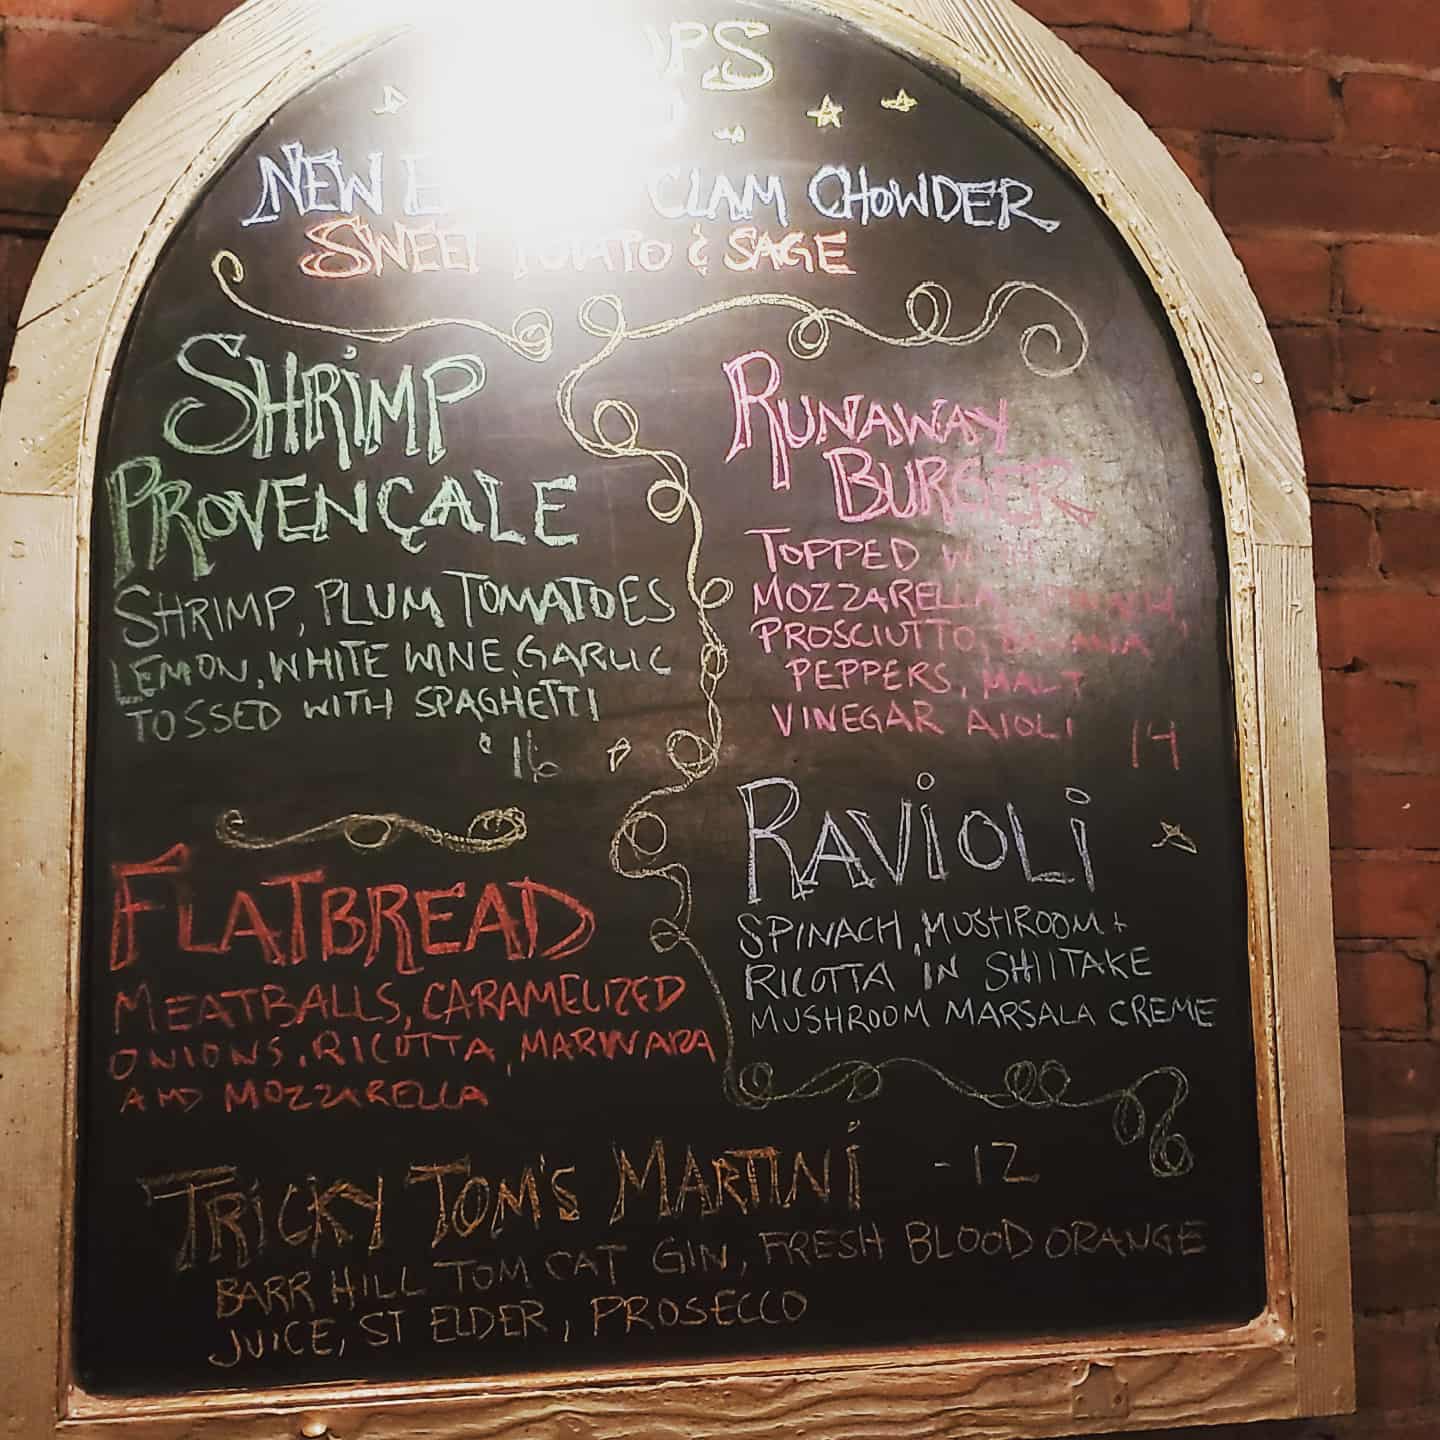 NEW CLAM CHOWDER
SWEET POTATO & SAGE
SHRIMP
PROVENÇALE
SHRIMP, PLUM TOMATOES
LEMON, WHITE WINE, GARLIC
TOSSED WITH SPAGHETTI
16
RUNAWAY
BURGER
TOPPED WITH
MOZZARELLA,
PROSCIUTTO, BANANA
PEPPERS, MALT
VINEGAR AIOLI
14
FLATBREAD
MEATBALLS, CARAMELIZED
ONIONS, RICOTTA, MARINARA
AND MOZZARELLA
RAVIOLI
SPINACH, MUSHROOM +
RICOTTA IN SHIITAKE
MUSHROOM MARSALA CREME
TRICKY TOM'S MARTINI -12
BARR HILL TOM CAT GIN, FRESH BLOOD ORANGE
JUICE, ST ELDER, PROSECCO